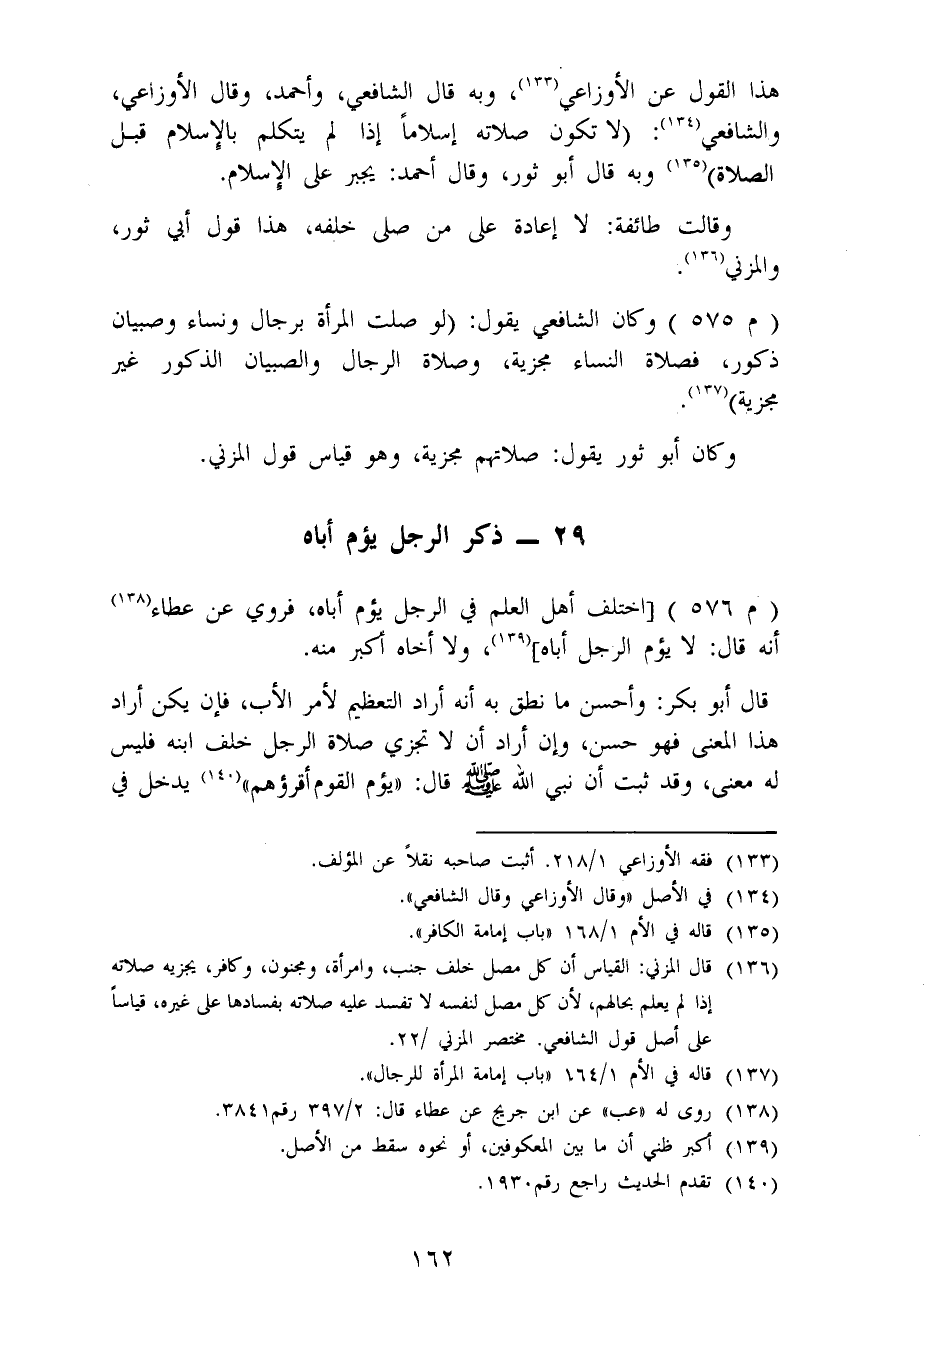 هذا القول عن الأوزاعي(١٣٣)، وبه قال الشافعي، وأحمد، وقال الأوزاعي،
والشافعي(١٣٤): (لا تكون صلاته إسلاماً إذا لم يتكلم بالإسلام قبل
الصلاة)(١٣٥) وبه قال أبو ثور، وقال أحمد: يجبر على الإسلام.
وقالت طائفة: لا إعادة على من صلى خلفه، هذا قول أبي ثور،
والمزني(١٣٦).
( م ٥٧٥ ) وكان الشافعي يقول: (لو صلت المرأة برجال ونساء وصبيان
ذكور، فصلاة النساء مجزية، وصلاة الرجال والصبيان الذكور غير
مجزية)(١٣٧).
وكان أبو ثور يقول: صلاتهم مجزية، وهو قياس قول المزني.
٢٩ - ذكر الرجل يؤم أباه
( م ٥٧٦ ) [اختلف أهل العلم في الرجل يؤم أباه، فروي عن عطاء(١٣٨)
أنه قال: لا يؤم الرجل أباه](١٣٩)، ولا أخاه أكبر منه.
قال أبو بكر: وأحسن ما نطق به أنه أراد التعظيم لأمر الأب، فإن يكن أراد
هذا المعنى فهو حسن، وإن أراد أن لا تجزي صلاة الرجل خلف ابنه فليس
له معنى، وقد ثبت أن نبي الله ﷺ قال: «يؤم القوم أقرؤهم»(١٤٠) يدخل في
(١٣٣) فقه الأوزاعي ٢١٨/١. أثبت صاحبه نقلاً عن المؤلف.
(١٣٤) في الأصل «وقال الأوزاعي وقال الشافعي».
(١٣٥) قاله في الأم ١٦٨/١ «باب إمامة الكافر».
(١٣٦) قال المزني: القياس أن كل مصل خلف جنب، وامرأة، ومجنون، وكافر، يجزيه صلاته
إذا لم يعلم بحالهم، لأن كل مصل لنفسه لا تفسد عليه صلاته بفسادها على غيره، قياساً
على أصل قول الشافعي. مختصر المزني /٢٢.
(١٣٧) قاله في الأم ١٦٤/١ «باب إمامة المرأة للرجال».
(١٣٨) روى له «عب» عن ابن جريج عن عطاء قال: ٣٩٧/٢ رقم٣٨٤١.
(١٣٩) أكبر ظني أن ما بين المعكوفين، أو نحوه سقط من الأصل.
(١٤٠) تقدم الحديث راجع رقم١٩٣٠.
١٦٢